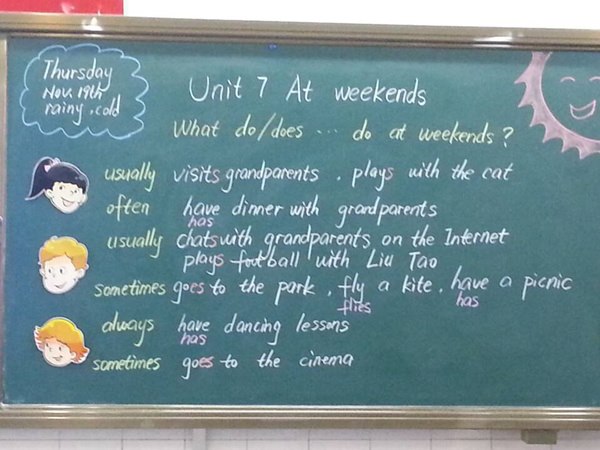 Thursday
Nov. 19th
rainy, cold
Unit 7 At weekends
What do/does ... do at weekends?
usually visits grandparents, plays with the cat
often have dinner with grandparents
has
usually chats with grandparents on the Internet
plays football with Liu Tao
sometimes goes to the park, fly a kite, have a picnic
flies has
always have dancing lessons
has
sometimes goes to the cinema